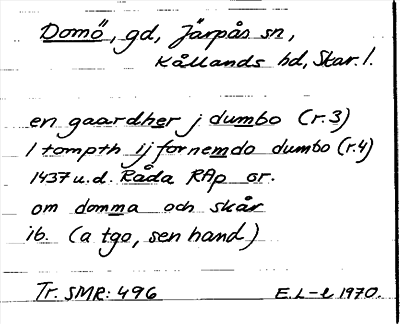 Domö, gd, Järpås sn,
Kållands hd, Skar. l.
en gaardher j dumbo (r.3)
1 tompth ij fornemdo dumbo (r.4)
1437 u.d. Råda RAp or.
om domma och skår
ib. (a tgo, sen hand)
Tr. SMR: 496 E.L-l 1970.